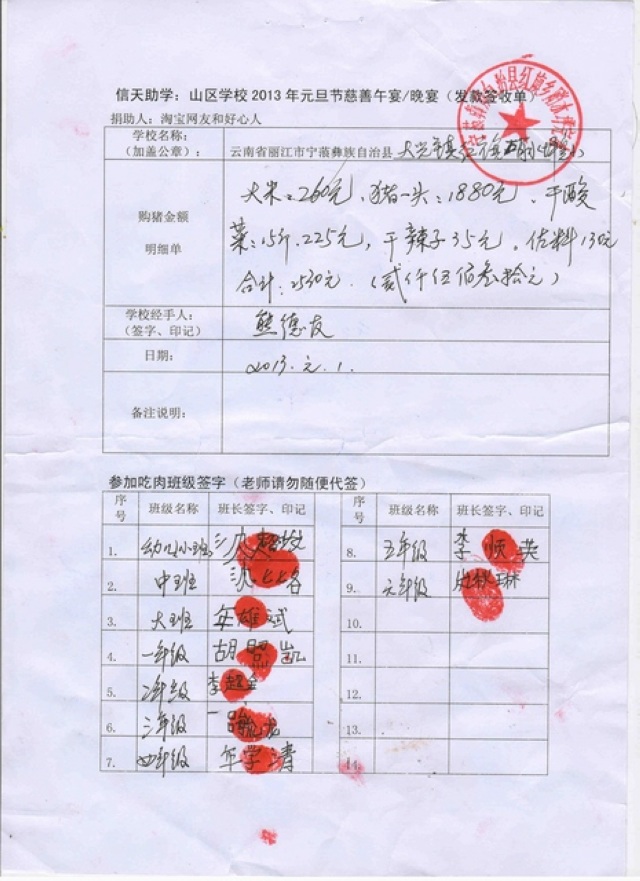 信天助学：山区学校2013年元旦节慈善午宴/晚宴（发款签收单）
捐助人：淘宝网友和好心人
学校名称：
（加盖公章）：
云南省丽江市宁蒗彝族自治县
购猪金额
明细单
大米：260元、猪一头：1880元、干酸
菜：15斤.225元，干辣子35元。佐料130元
合计：2530元.（贰仟伍佰叁拾元）
学校经手人：
（签字、印记）
熊德友
日期：
2013.元.1.
备注说明：
参加吃肉班级签字（老师请勿随便代签）
序号 班级名称 班长签字、印记 序号 班级名称 班长签字、印记
1. 幼儿小班
2. 中班
3. 大班
4. 一年级 胡盟凯
5. 2年级 李超金
6. 三年级
7. 四年级
8. 五年级 李顺英
9. 六年级
10.
11.
12.
13.
14.